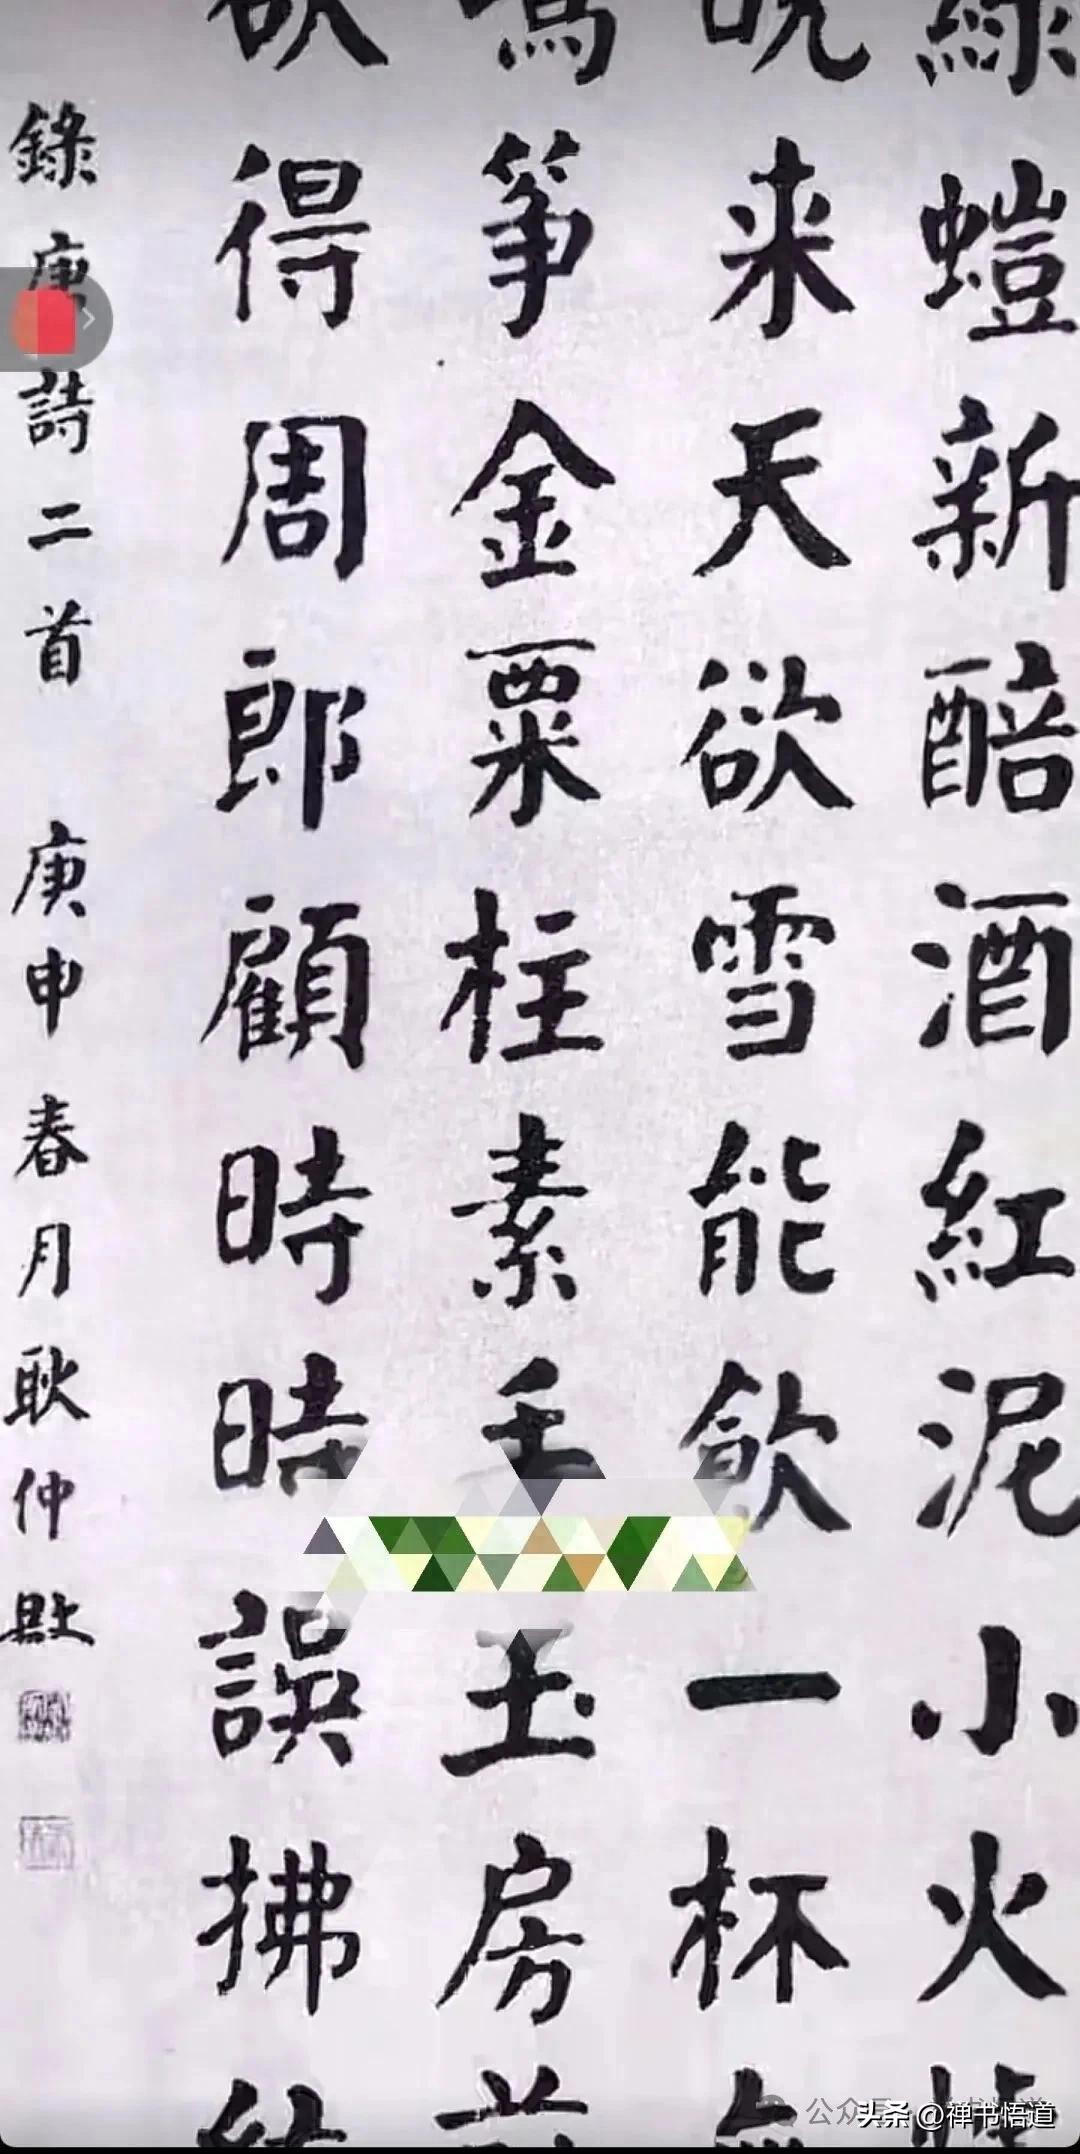 綠螘新醅酒紅泥小火
晚来天欲雪能飲一杯無
鳴筝金粟柱素手玉房前
欲得周郎顧時時誤拂絃
錄唐詩二首 庚申春月耿仲敭
公众号
头条 @禅书悟道